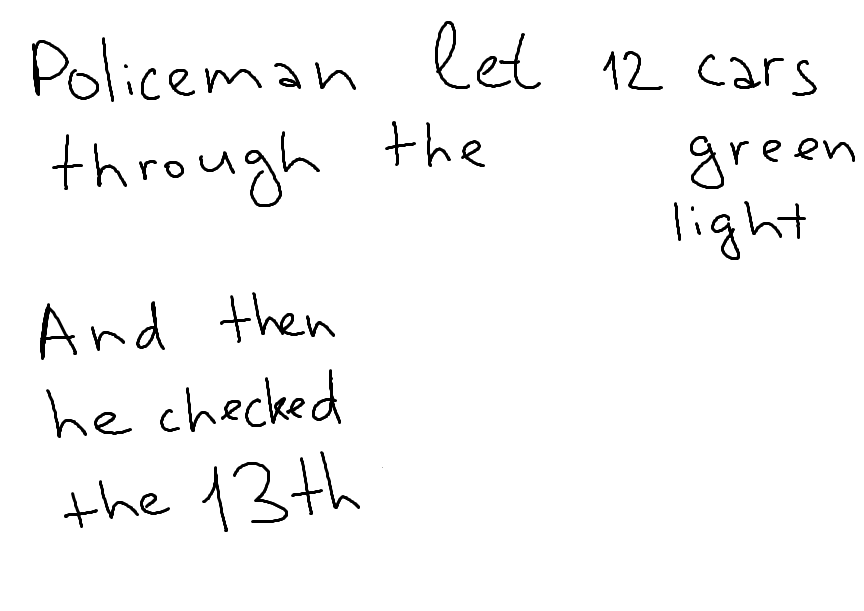 Policeman let 12 cars
through the green
light
And then
he checked
the 13th